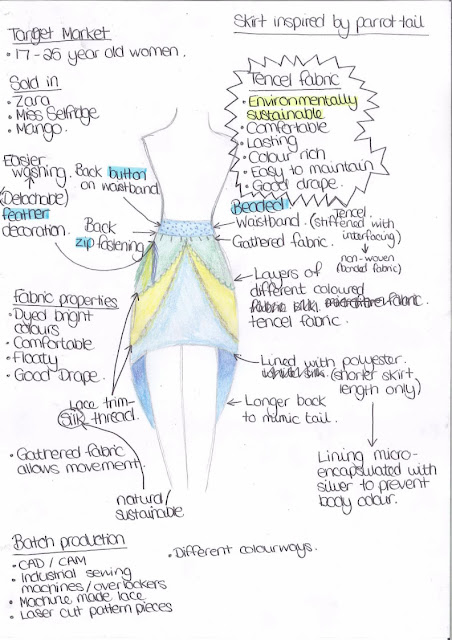 Skirt inspired by parrot tail
Target Market
• 17-25 year old women.
Sold in
• Zara
• Miss Selfridge
• Mango.
Tencel fabric
• Environmentally
sustainable
• Comfortable
• Lasting
• Colour rich
• Easy to maintain
• Good drape.
Easier
washing.
(Detachable)
feather
decoration.
Back button
on waistband
Back
zip fastening
Beaded
Waistband. (stiffened with
Tencel
interfacing)
non-woven
(bonded fabric)
Gathered fabric.
Layers of
different coloured
fabric.
tencel fabric.
Fabric properties
• Dyed bright
colours
• Comfortable
• Floaty
• Good Drape.
Lined with polyester.
(shorter skirt
length only)
Lace trim-
silk thread.
Longer back
to mimic tail.
• Gathered fabric
allows movement.
natural/
sustainable
Lining micro-
encapsulated with
silver to prevent
body odour.
Batch production
• CAD / CAM
• Industrial sewing
machines/overlockers
• Machine made lace
• Laser cut pattern pieces
• Different colourways.